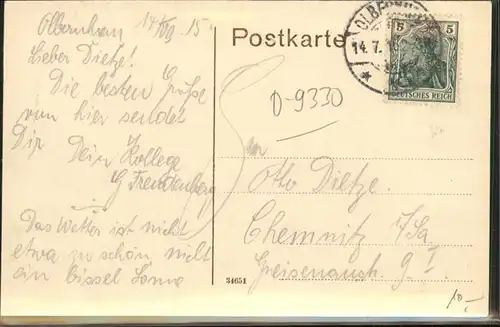 Olbernhau 14/VII 15
Lieber Dietze!
Die besten Grüße
von hier sendet
Dir Dein Kollege
G Freudenberg
Das Wetter ist nicht
etwa zu schön nilt
ein bissel Sonne
Postkarte
OLBERNHAU
14.7.15
5 5
DEUTSCHES REICH
D-9330
Otto Dietze.
Chemnitz i/Sa.
Gneisenaustr. 9 I
34651
10.-